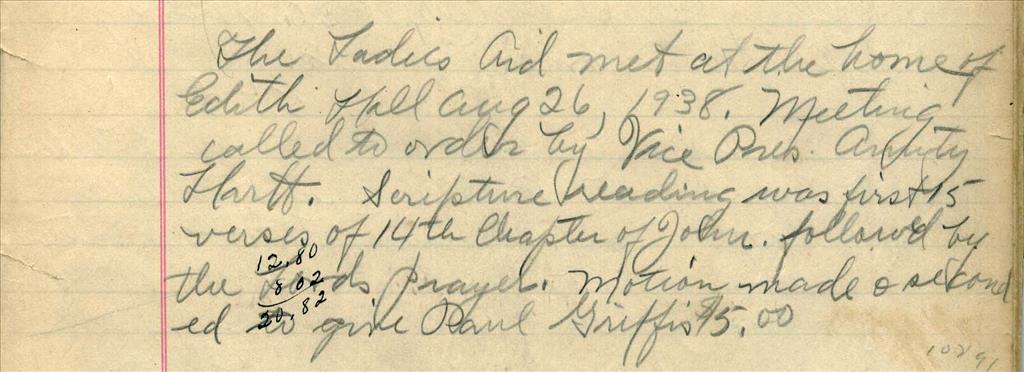 The Ladies Aid met at the home of
Edith Hall Aug 26, 1938. Meeting
called to order by Vice Pres.
Hartt. Scripture reading was first 15
verses of 14th Chapter of John. followed by
12.80
the Lords prayer. Motion made & second
8.02
20.82
ed to give Paul Griffis $5.00
10291